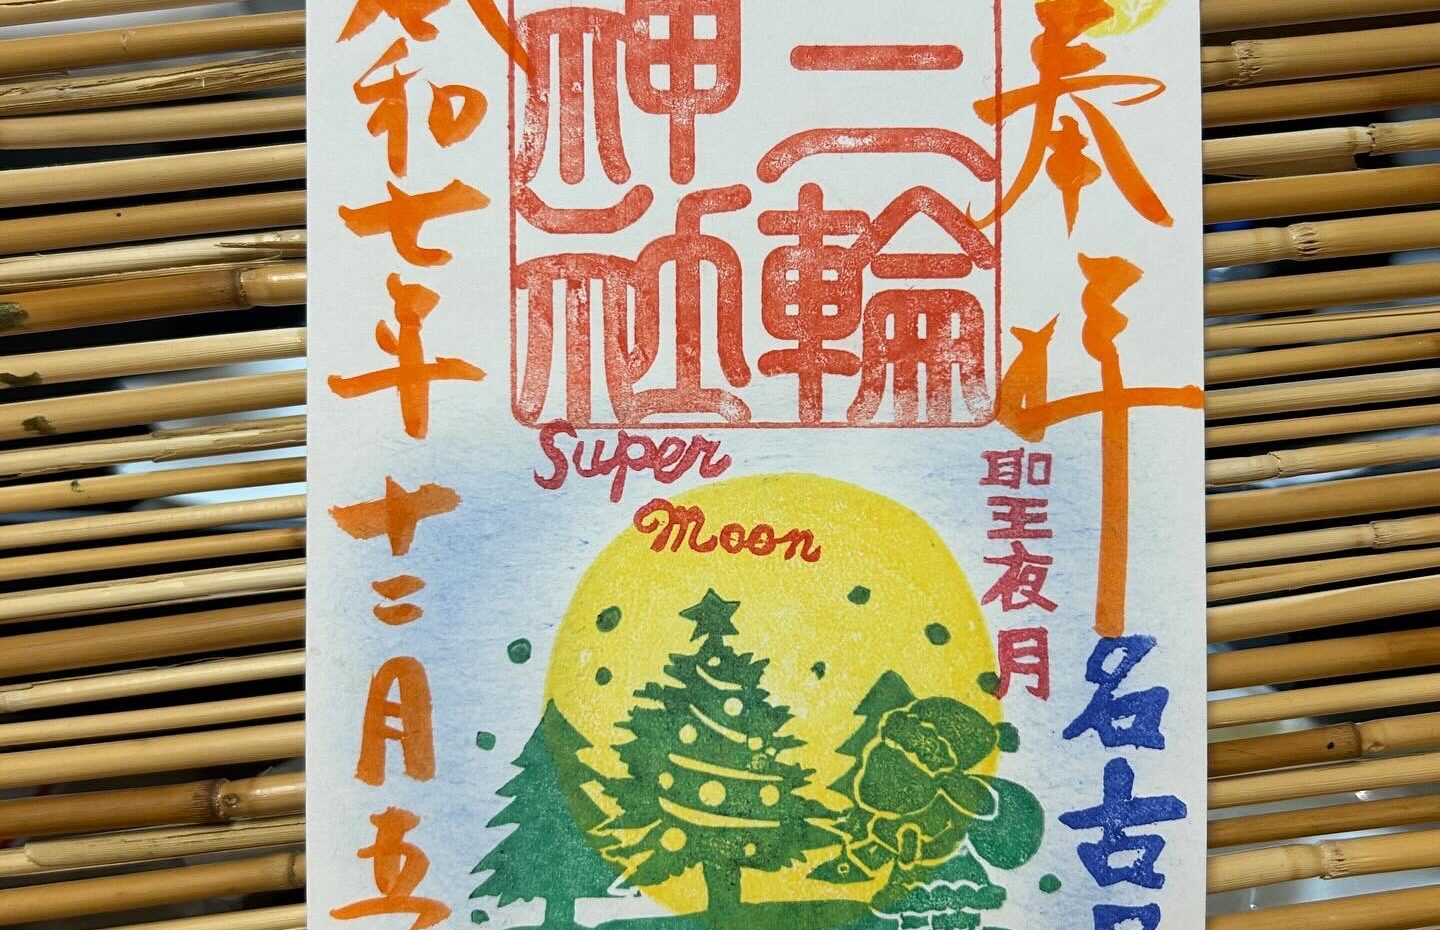 奉拝
名古
聖夜月
三輪
神社
Super
Moon
令和七年十二月五